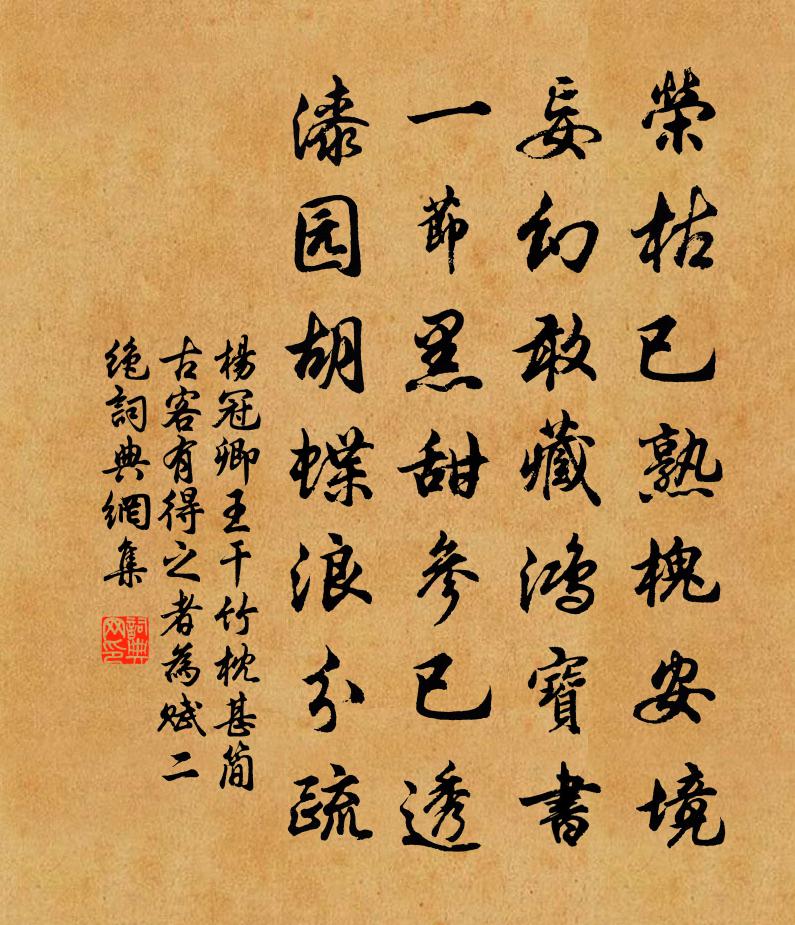 榮枯已熟槐安境
妄幻敢藏鴻寶書
一節黑甜參已透
漆园胡蝶浪分疏
楊冠卿王干竹枕甚简
古客有得之者為赋二
绝詞典網集
詞典网印